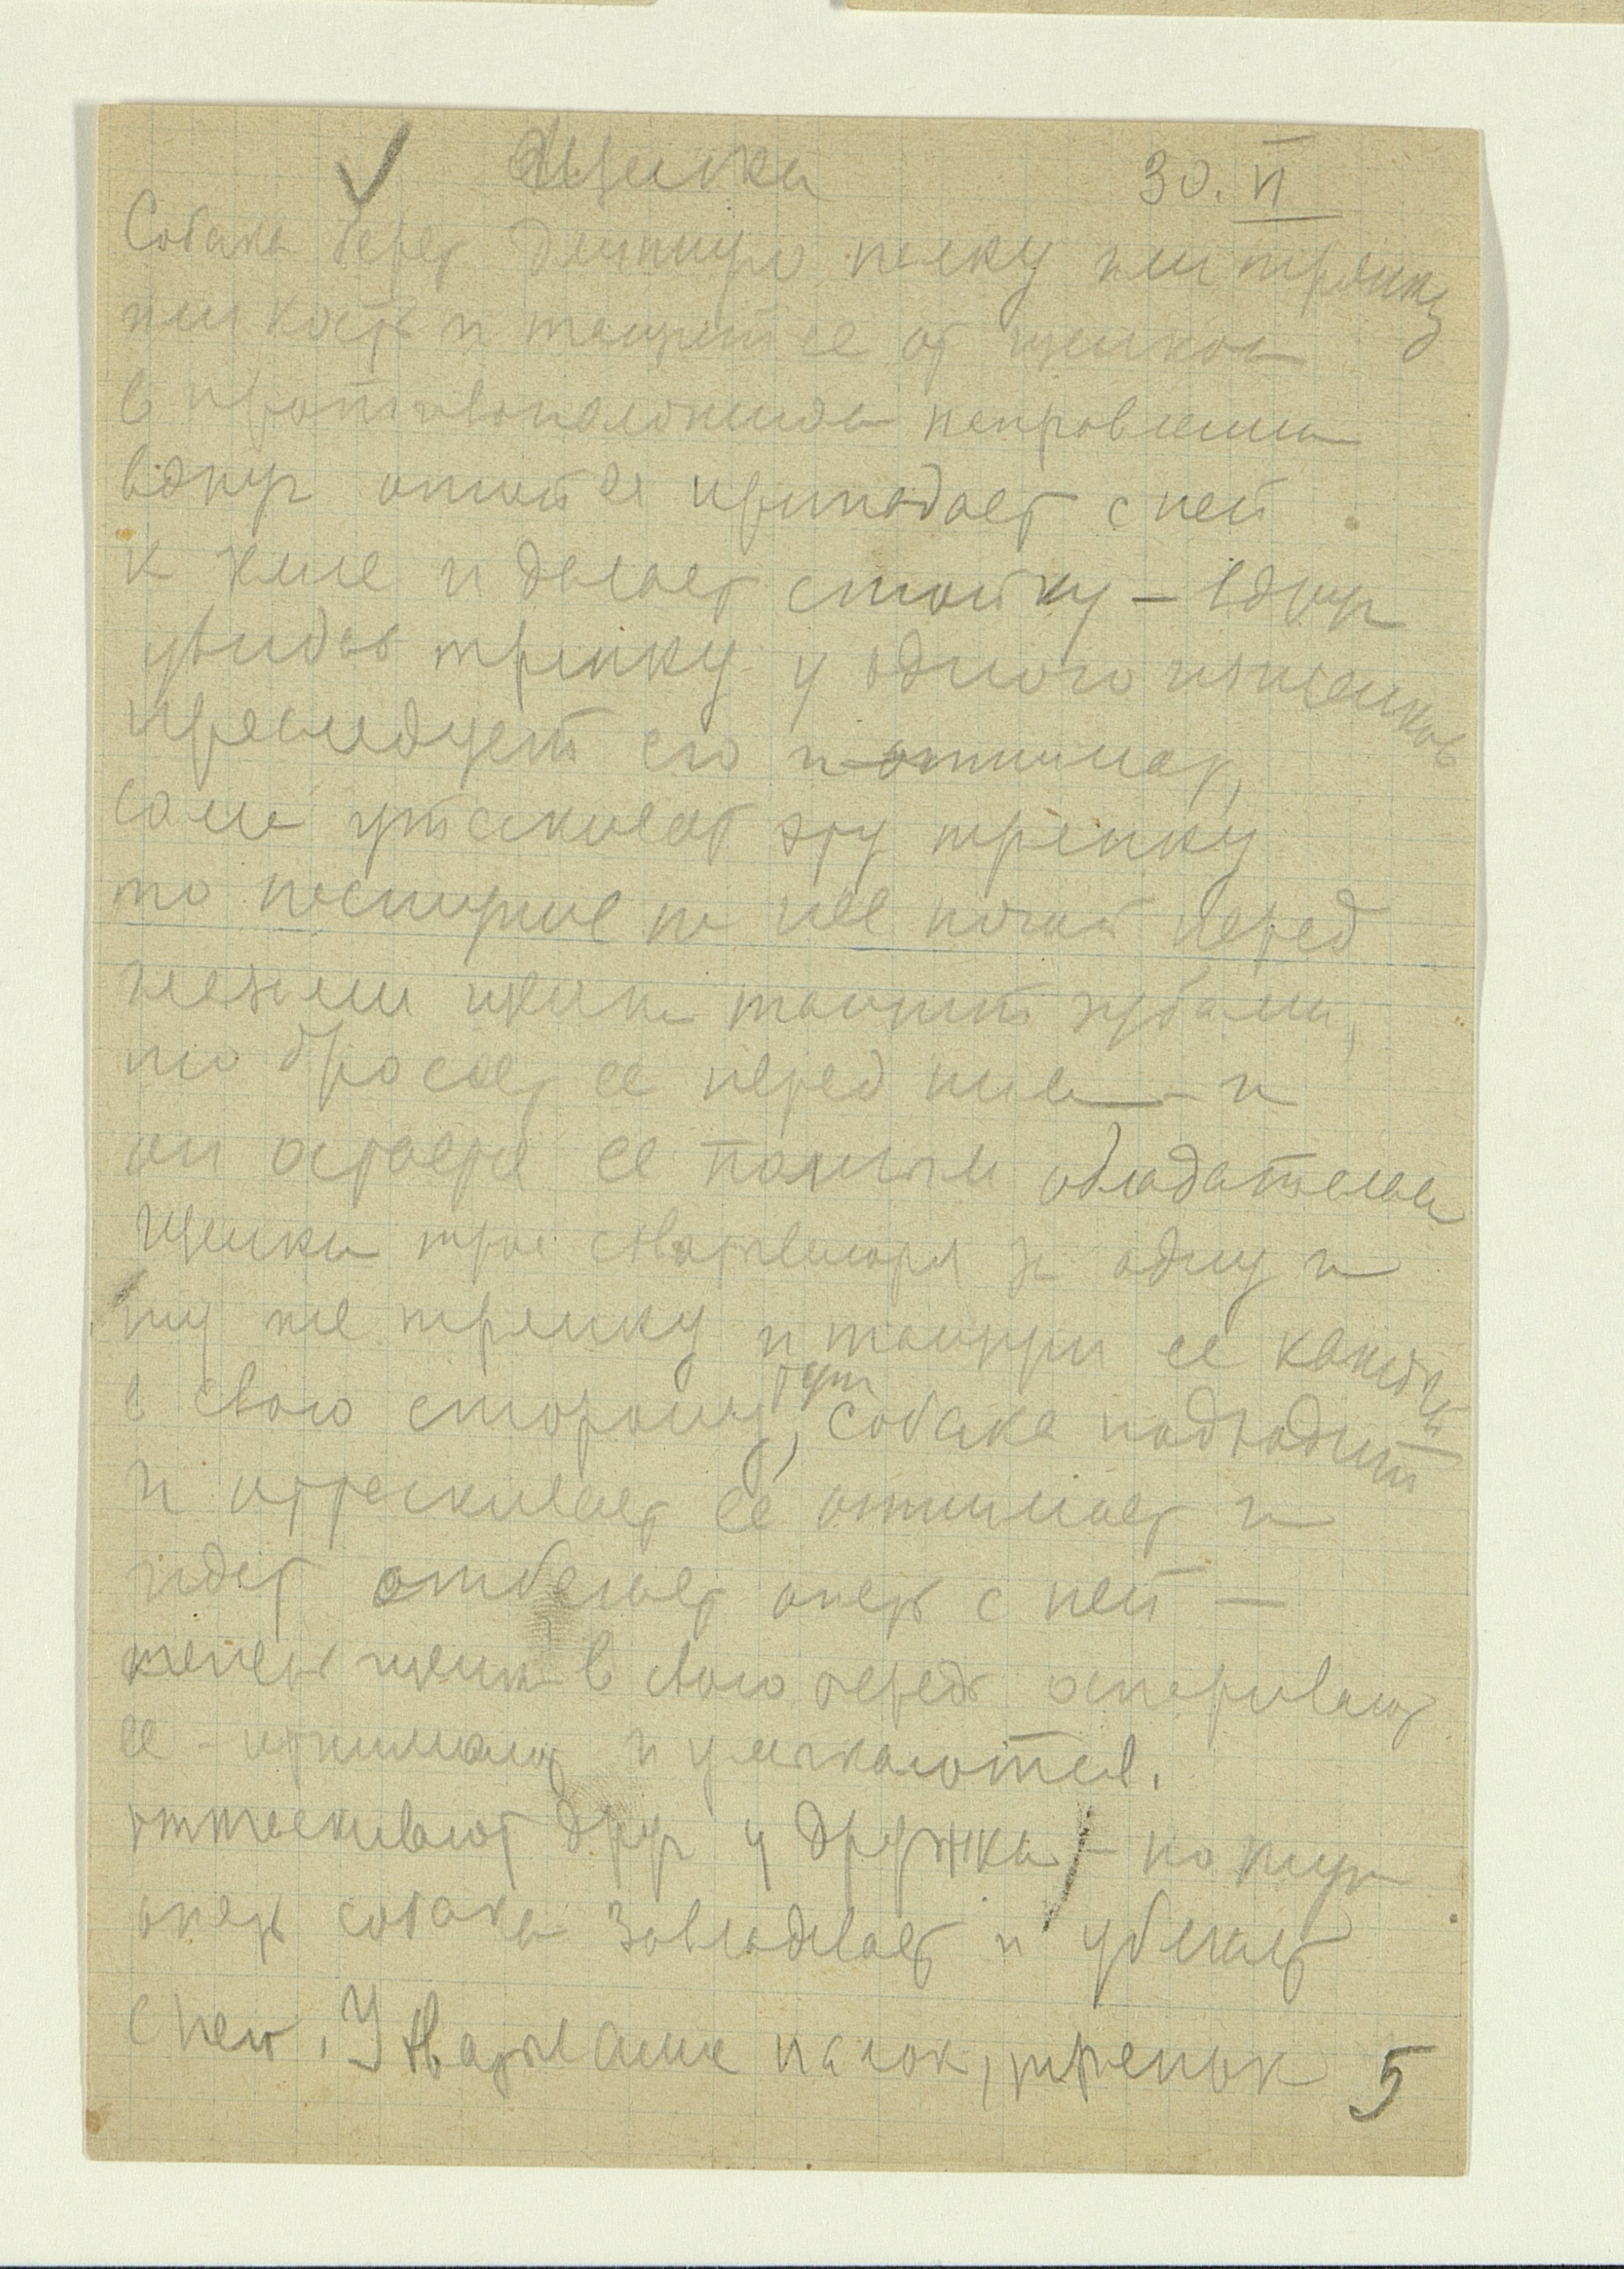 Щенки 30.VI
Собака берет длинную палку или тряпку
или кость и тащит ее от щенков
в противоположном направлении
вдруг опять припадает с ней
к земле и делает стойку – вдруг
увидев тряпку у одного из щенков
преследует его и отнимает,
сама утаскивает эту тряпку
то наступив на нее ногой перед
глазами щенка тащит зубами,
то бросает ее перед ним – и
он остается ее полным обладателем
Щенки трое схватываются за одну и
ту же тряпку и тащут ее каждый
в свою сторону, тут собака подходит
и оттаскивает ее отнимает и
идет отбегает опять с ней –
теперь щенки в свою очередь оспаривают
ее – отнимают и увлекаются.
оттаскивают друг у дружки – но тут
опять собака завладевает и убегает
с ней. Ухватывание палок, тряпок 5